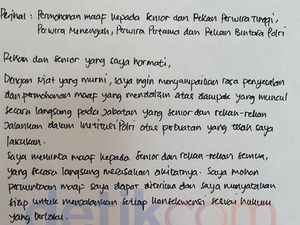 Perihal : Permohonan maaf kepada Senior dan Rekan Perwira Tinggi,
Perwira Menengah, Perwira Pertama dan Rekan Bintara Polri
Rekan dan senior yang saya hormati,
Dengan niat yang murni, saya ingin menyampaikan rasa penyesalan
dan permohonan maaf yang mendalam atas dampak yang muncul
secara langsung pada jabatan yang senior dan rekan-rekan
jalankan dalam institusi Polri atas perbuatan yang telah saya
lakukan.
Saya meminta maaf kepada senior dan rekan-rekan semua,
yang secara langsung merasakan akibatnya. Saya mohon
permintaan maaf saya dapat diterima dan saya menyatakan
siap untuk menjalankan setiap konsekuensi sesuai hukum
yang berlaku.
detikcom